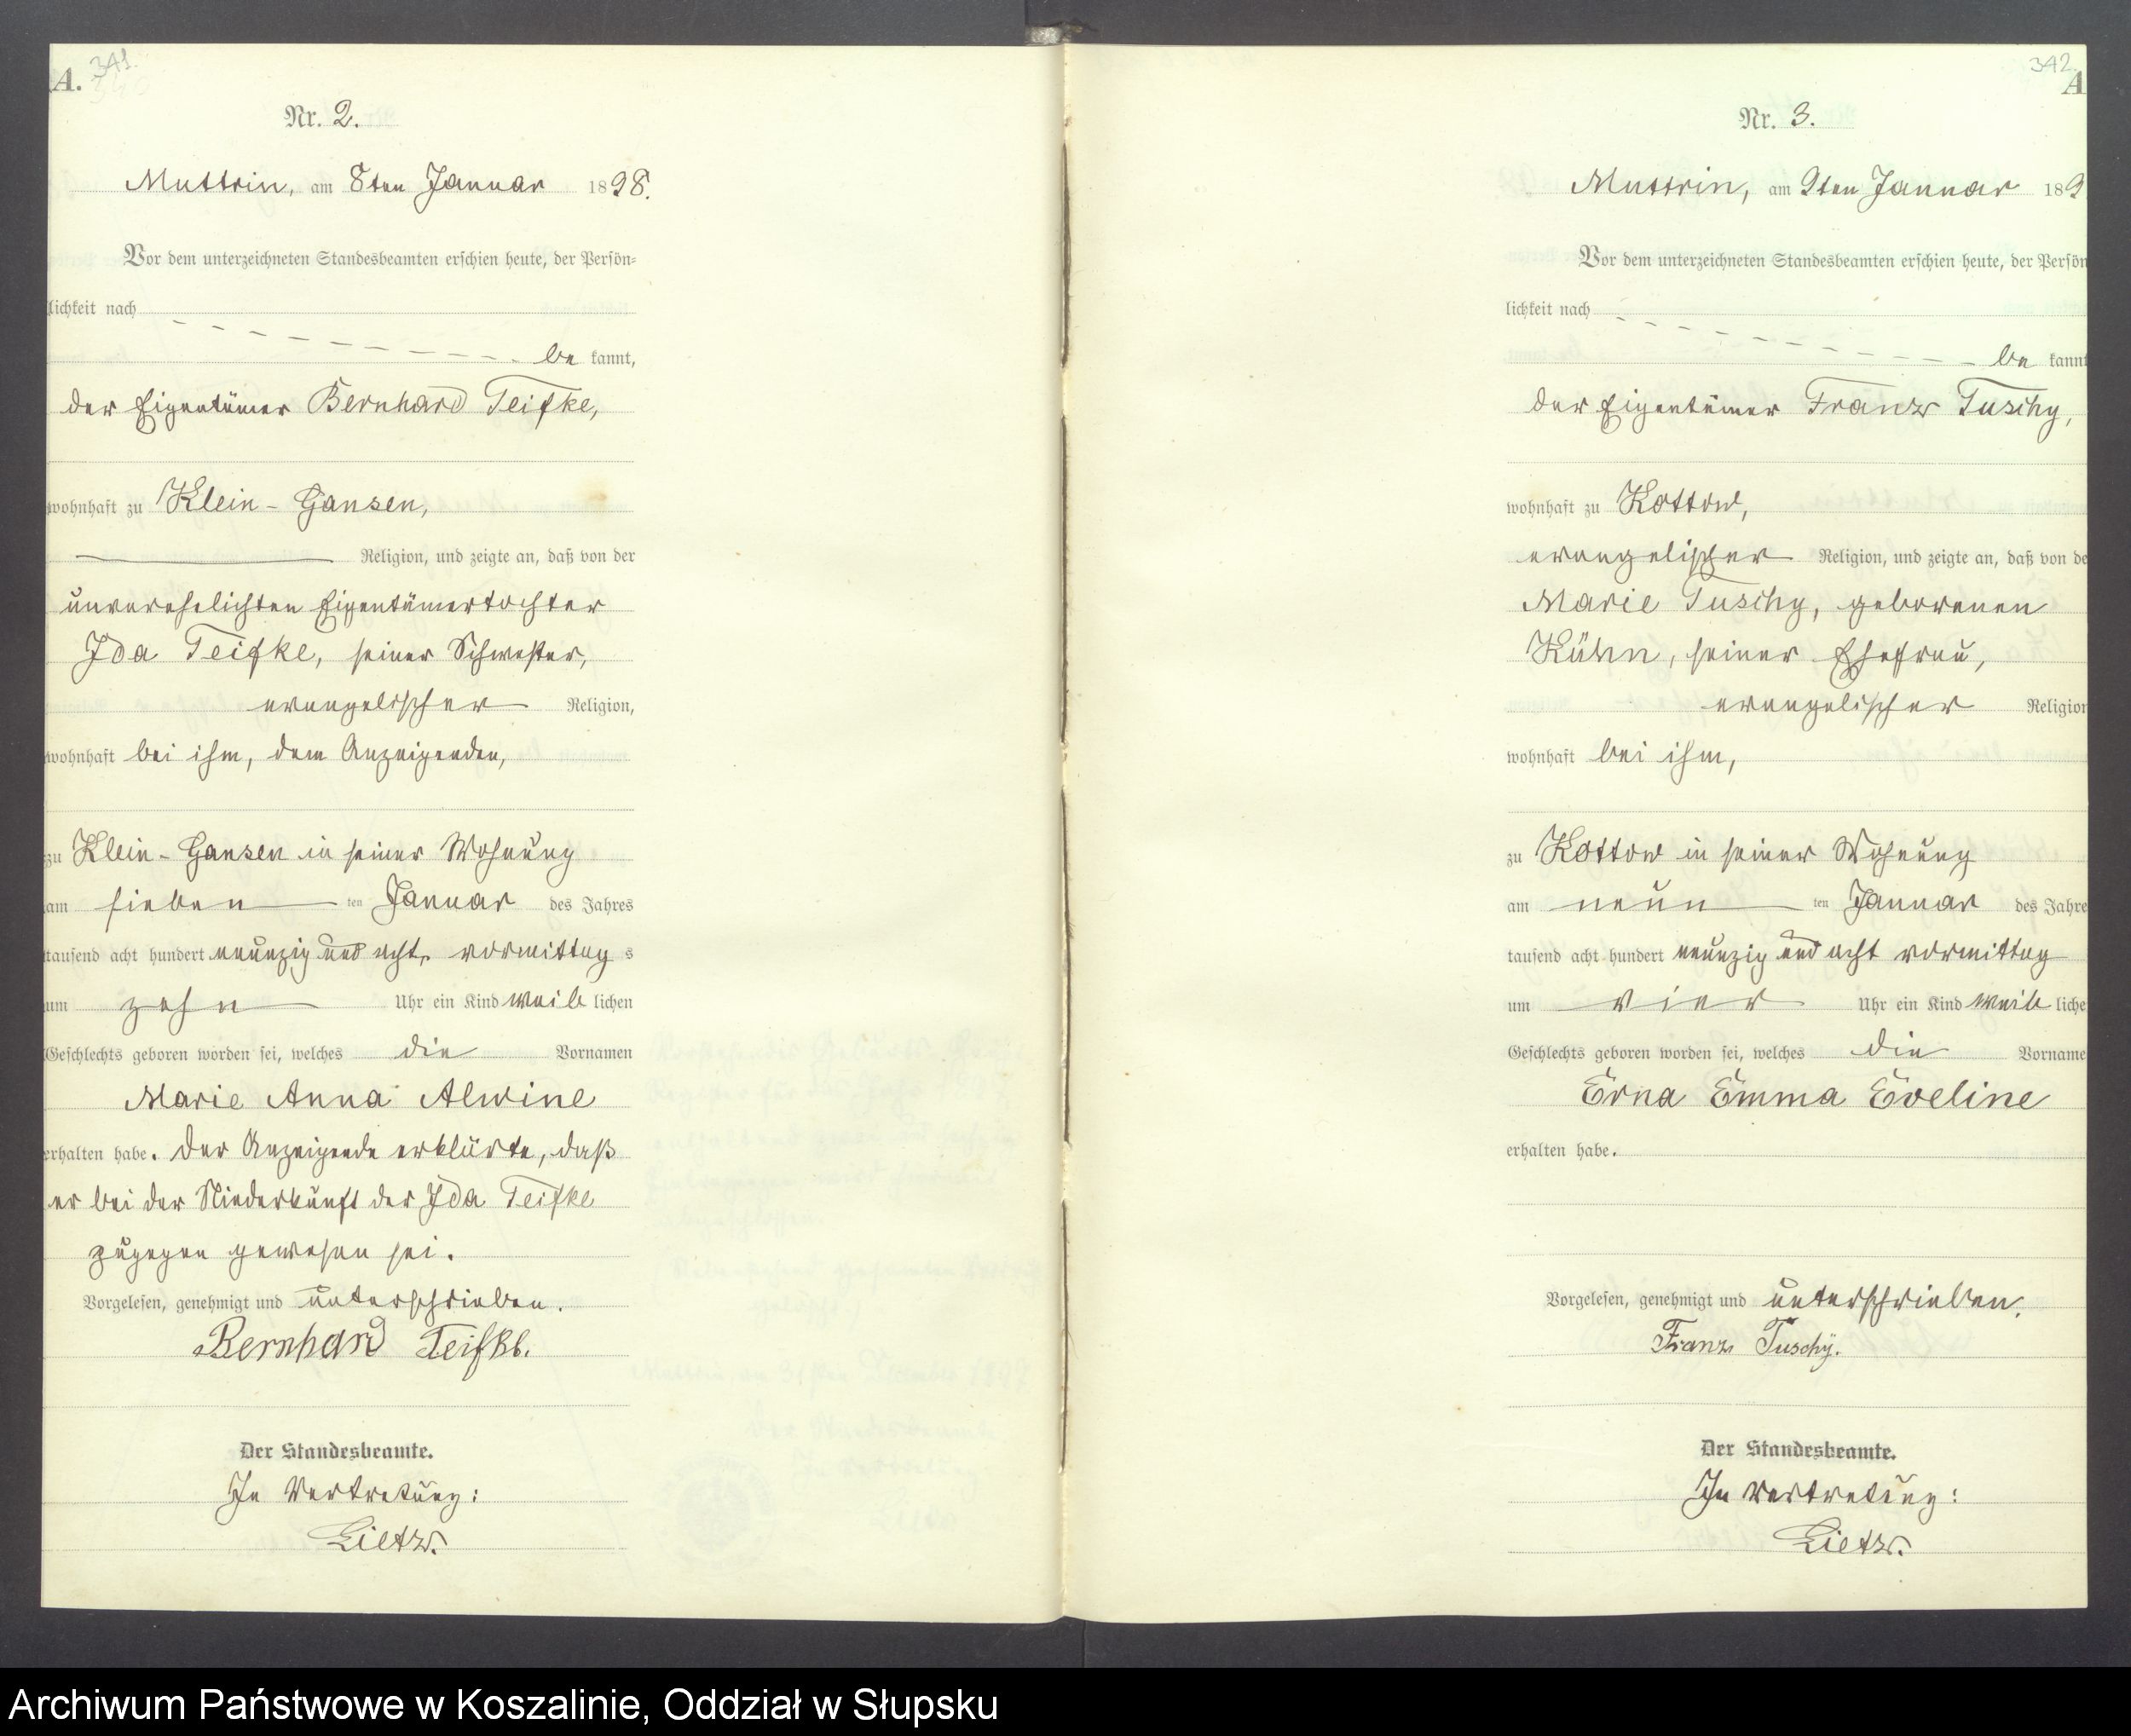 341.
A.
Nr. 2.
Muttrin, am 8ten Januar 1898.
Vor dem unterzeichneten Standesbeamten erschien heute, der Persön=
lichkeit nach
be kannt,
der Eigentümer Bernhard Teifke,
wohnhaft zu Klein-Gansen,
Religion, und zeigte an, daß von der
unverehelichten Eigentümertochter
Ida Teifke, seiner Schwester,
evangelischer Religion,
wohnhaft bei ihm, dem Anzeigenden,
zu Klein-Gansen in seiner Wohnung
am sieben ten Januar des Jahres
tausend acht hundert neunzig und acht, vormittag s
um zehn Uhr ein Kind weib lichen
Geschlechts geboren worden sei, welches die Vornamen
Marie Anna Alwine
erhalten habe. Der Anzeigende erklärte, daß
er bei der Niederkunft der Ida Teifke
zugegen gewesen sei.
Vorgelesen, genehmigt und unterschrieben.
Bernhard Teifke.
Der Standesbeamte.
In Vertretung:
Lietz.
342.
A
Nr. 3.
Muttrin, am 9ten Januar 189
Vor dem unterzeichneten Standesbeamten erschien heute, der Persön
lichkeit nach
be kannt
der Eigentümer Franz Tuschy,
wohnhaft zu Kottow,
evangelischer Religion, und zeigte an, daß von de
Marie Tuschy, geborenen
Kühn, seiner Ehefrau,
evangelischer Religion
wohnhaft bei ihm,
zu Kottow in seiner Wohnung
am neun ten Januar des Jahre
tausend acht hundert neunzig und acht vormittag
um vier Uhr ein Kind weib liche
Geschlechts geboren worden sei, welches die Vorname
Erna Emma Eveline
erhalten habe.
Vorgelesen, genehmigt und unterschrieben.
Franz Tuschy.
Der Standesbeamte.
In Vertretung:
Lietz.
Archiwum Państwowe w Koszalinie, Oddział w Słupsku